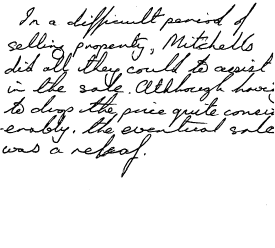 In a difficult period of
selling property, Mitchells
did all they could to assist
in the sale. Although havin
to drop the price quite consi
erably. the eventual sale
was a releaf.